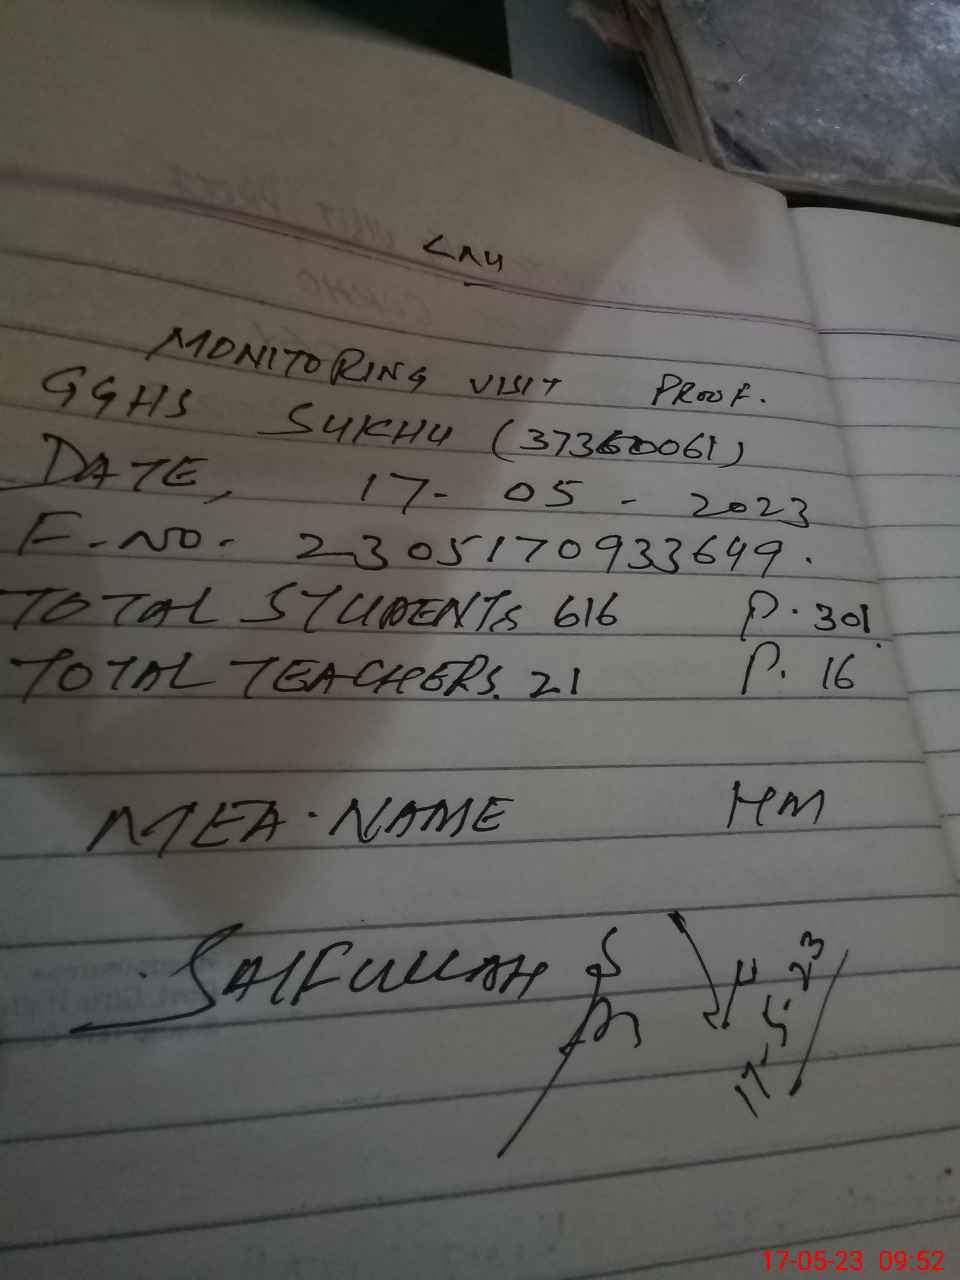 MONITORING VISIT PROOF.
GGHS SUKHU (37360061)
DATE, 17-05-2023
F-NO. 2305170933649.
TOTAL STUDENTS 616 P. 301
TOTAL TEACHERS. 21 P. 16
MEA. NAME HM
SAIFULLAH
17.5.23
17-05-23 09:52